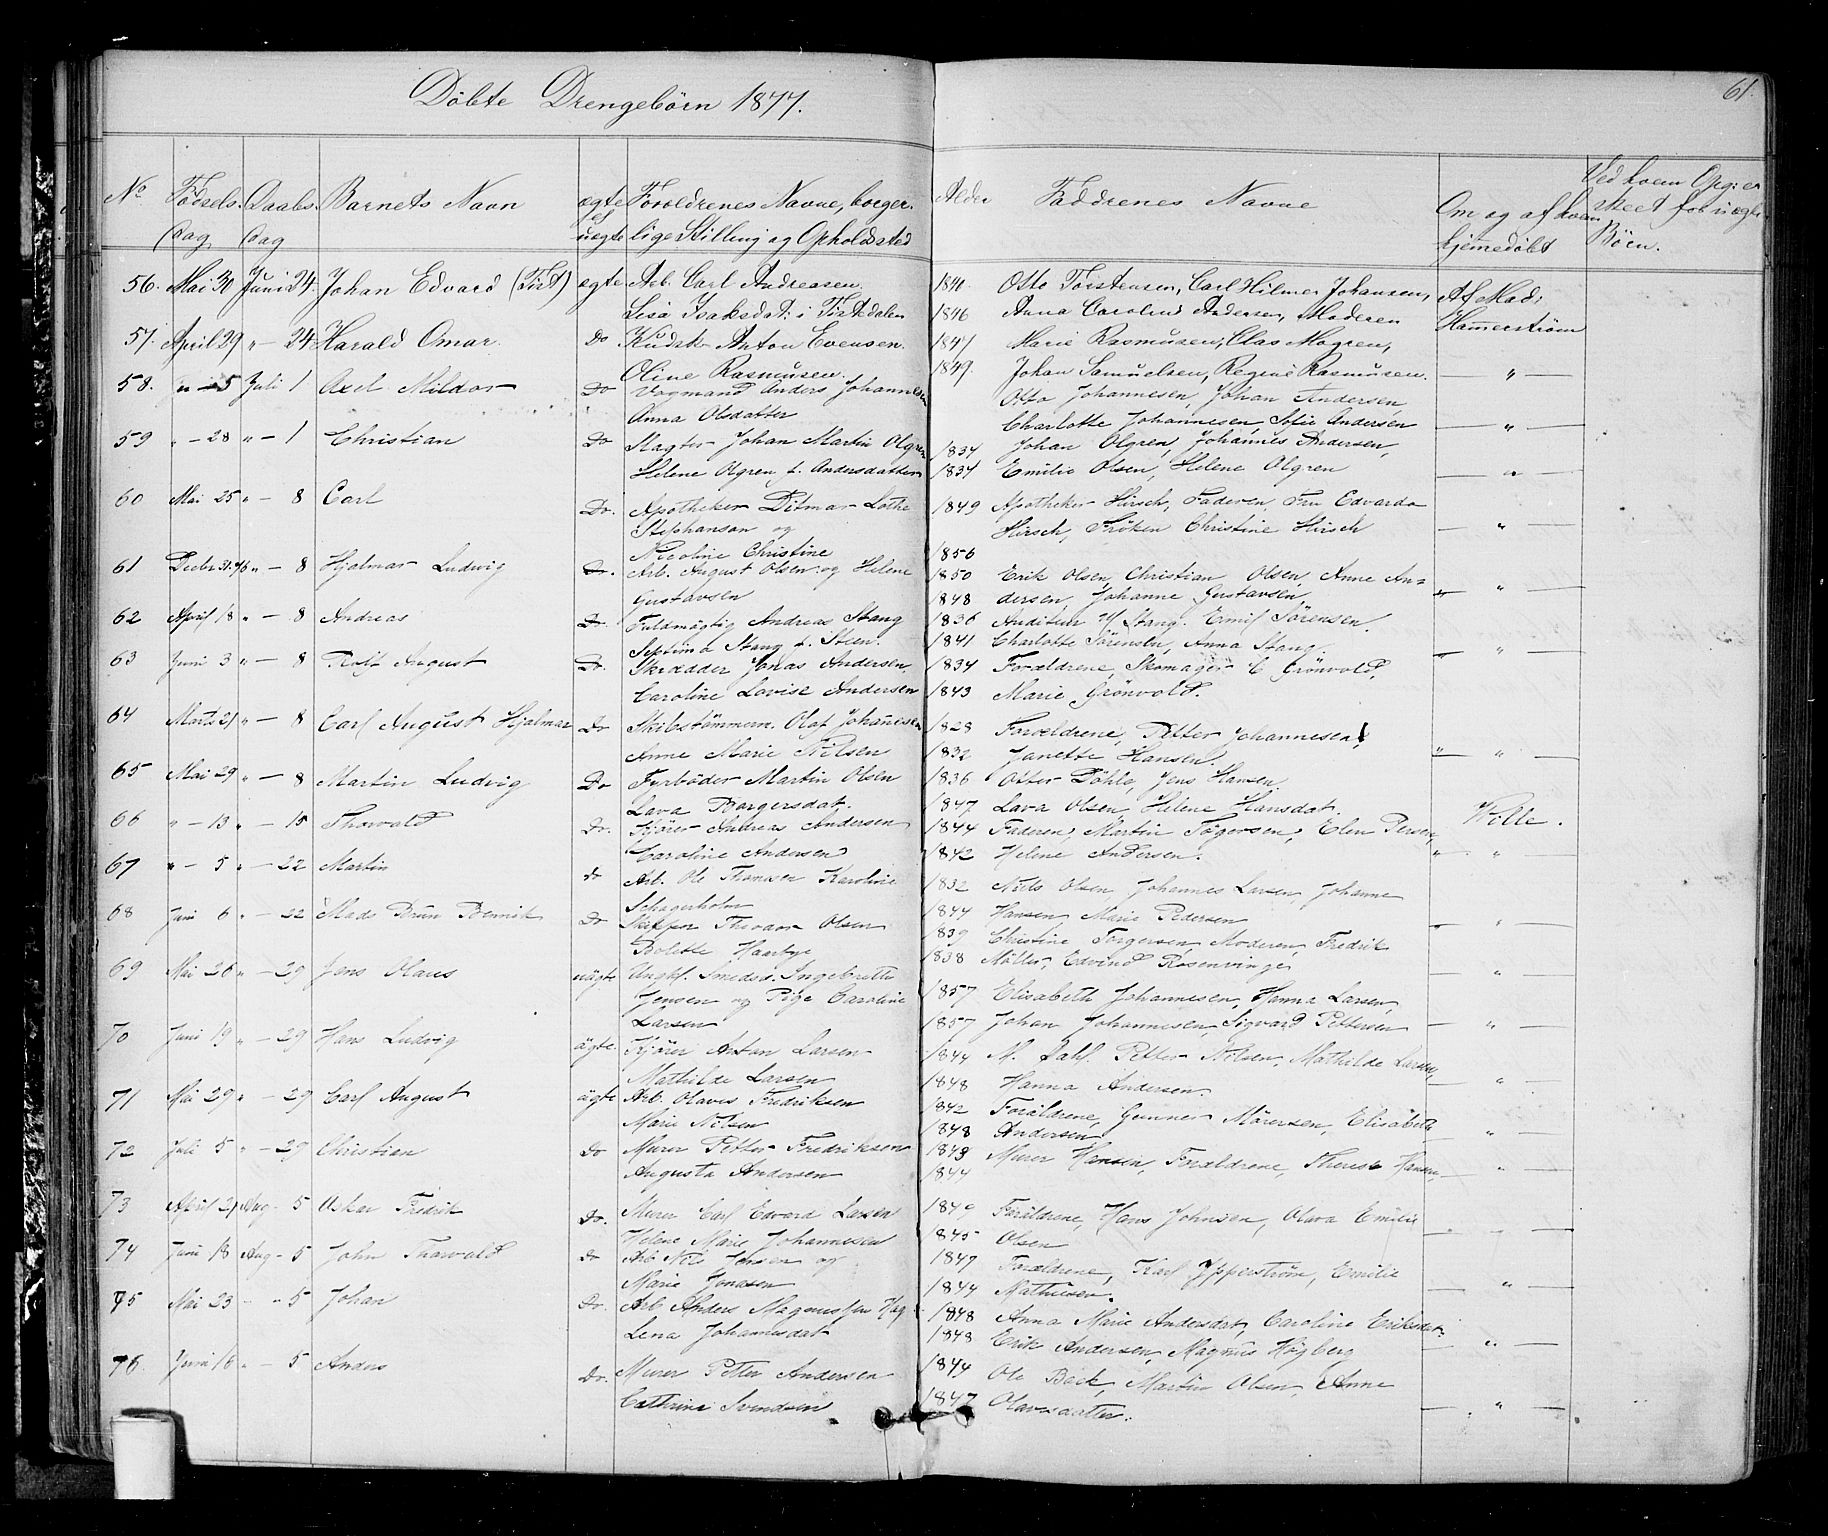 Døbte Drengebørn 1877.
61.
No Fødsels dag Daabs dag Barnets Navn ægte el uegte Foreldrenes Navne, borgerlige Stilling og Opholdsted Alder Faddrenes Navne Om og af hvem hjemmedøbt Ved hvem Opg: er skeet for uægte Børn.
56. Mai 30 Juni 24. Johan Edvard (Tist) ægte Arb. Carl Andreasen. 1840. Otto Torstensen, Carl Hilmer Johansen, Af Mad:
Lisa Isaksdat: i Tistedalen 1846 Anna Caroline Andersen, Moderen Hammerstrøm
57. April 29 " - 24 Harald Omar. Do Kudsk Anton Evensen. 1847 Marie Rasmusen, Clas Mogren,
Oline Rasmusen. 1849. Johan Samuelsen, Regine Rasmusen. "
58. " - 5 Juli 1 Axel Mildor Do Vogmand Anders Johannesen Otto Johannesen, Johan Andersen,
Anna Olsdatter Charlotte Johannesen, Sofie Andersen "
59 " - 28 " - 1 Christian Do Magter Johan Martin Olgren 1834 Johan Olgren, Johannes Andersen,
Helene Olgren f. Andersdatter 1834 Emilie Olsen, Helene Olgren "
60 Mai 25 " - 8 Carl Do. Apotheker Ditmar Lothe 1849 Apotheker Hirsch, Faderen, Fru Edvarda
Stephanson og Hirsch, Frøken Christine Hirsch "
Nicoline Christine 1856
61 Decbr 31 76 " - 8 Hjalmar Ludvig Do. Arb. August Olsen og Helene 1850 Erik Olsen, Christian Olsen, Anne An=
Gustavsen 1848 dersen, Johanne Gustavsen. " "
62 April 18 " - 8 Andreas Do. Fuldmægtig Andreas Stang 1836 Auditeur Stang. Emil Sørensen.
Septima Stang f. Steen. 1841 Charlotte Sørensen, Anna Stang. " "
63 Juni 3 " - 8 Rolf August Do. Skrædder Jonas Andersen, 1834 Forældrene, Skomager C Grönvold,
Caroline Lovise Andersen 1843 Marie Grönvold.
64 Marts 21 " - 8 Carl August Hjalmar Do Skibstømmerm. Olaf Johannesen 1828 Forældrene, Petter Johannesen,
Anne Marie Nilsen 1832 Janette Hansen. " "
65 Mai 29 " - 8 Martin Ludvig Do Fyrbøder Martin Olsen 1836 Otter Döhle, Jens Hansen.
Lava Borgersdat. 1847 Lava Olsen, Helene Hansdat. Wille.
66 " - 13 " - 15 Thorvald Do. Kjører Andreas Andersen 1844 Faderen, Martin Tøgersen, Elen Persen,
Caroline Andersen 1842 Helene Andersen. " "
67 " - 5 " - 22 Martin do Arb. Ole Thomsen Karoline 1832 Niels Olsen, Johannes Larsen, Johanne
Schagerholm 1844 Hansen Marie Pedersen "
68 Juni 6 " - 22 Mads Brun Bernit Do Skipper Thorvar Olsen 1839 Christine Torgersen, Moderen, Fredrik
Bolette Haarbye 1838 Møller, Edvind Rosenvinge "
69 Mai 26 " - 29 Jens Olaus uägte Ungk. Smedsv. Ingebrette 1857 Elisabeth Johannesen, Hanna Larsen,
Jensen og Pige Caroline
Larsen 1857 Johan Johannesen, Sigvard Pettersen "
70 Juni 19 " - 29 Hans Ludvig ägte. Kjörer Anton Larsen 1844 M. Dahl. Petter Nilsen, Mathilde Larsen,
Mathilde Larsen 1848 Hanna Andersen. "
71 Mai 29 " - 29 Carl August ägte Arb. Olaves Fredriksen 1842 Foräldrene, Gunner Mörersen, Elisäbeth
Marie Nilsen 1848 Andersen "
72 Juli 5 " - 29 Christian Do Murer Petter Fredriksen 1843 Murer Hansen, Forældrene, Therese Hansen,
Augusta Andersen 1844 "
73 April 21 Aug - 5 Oskar Fredrik Do. Murer Carl Edvard Larsen 1849 Foräldrene, Hans Johnsen, Olava Emilie
Helene Marie Johannesen 1845 Olsen "
74 Juni 18 Aug - 5 John Thorvald Do Arb Nils Jonsen og 1849 Forældrene, Karl Ipperström, Emilie
Marie Jonasen 1844 Mathiesen. "
75 Mai 23 " 5 Johan Do. Arb Anders Magnussen Hög 1848 Anna Marie Andersdat, Caroline Eriksdat.
Lena Johannesdat 1848 Erik Andersen, Magnus Högberg "
76. Juni 16 " - 5 Anders Do. Murer Petter Andersen 1844 Ole Back, Martin Olsen, Anne
Cathrine Svendsen 1847 Olavesdatter. "